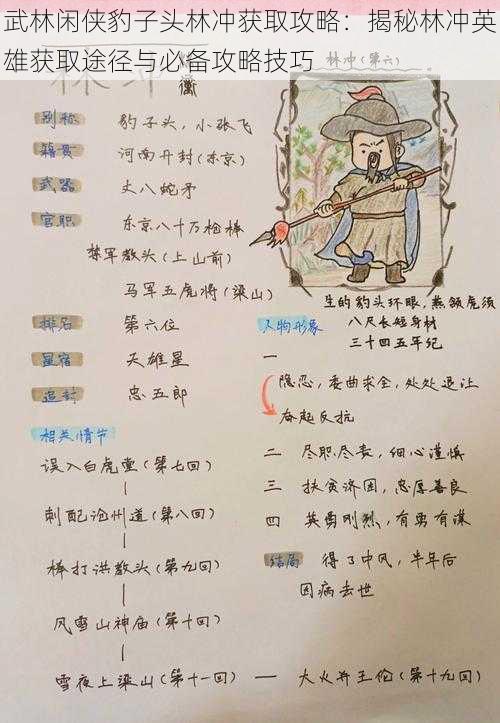 武林闲侠豹子头林冲获取攻略：揭秘林冲英
雄获取途径与必备攻略技巧
林冲（第六）
林冲
衝
别称 豹子头，小张飞
籍贯 河南开封（东京）
武器 丈八蛇矛
官职 东京八十万枪棒
禁军教头（上山前）
马军五虎将（梁山）
排名 第六位
星宿 天雄星
追封 忠五郎
生的豹头环眼，燕颔虎须
八尺长短身材
三十四五年纪
人物形象
一
隐忍，委曲求全，处处退让
奋起反抗
二 尽职尽责，细心谨慎
三 扶贫济困，忠厚善良
四 英勇刚烈，有勇有谋
结局 得了中风，半年后
因病去世
相关情节
误入白虎堂（第七回）
刺配沧州道（第八回）
棒打洪教头（第九回）
风雪山神庙（第十回）
雪夜上梁山（第十一回） — 火火并王伦（第十九回）